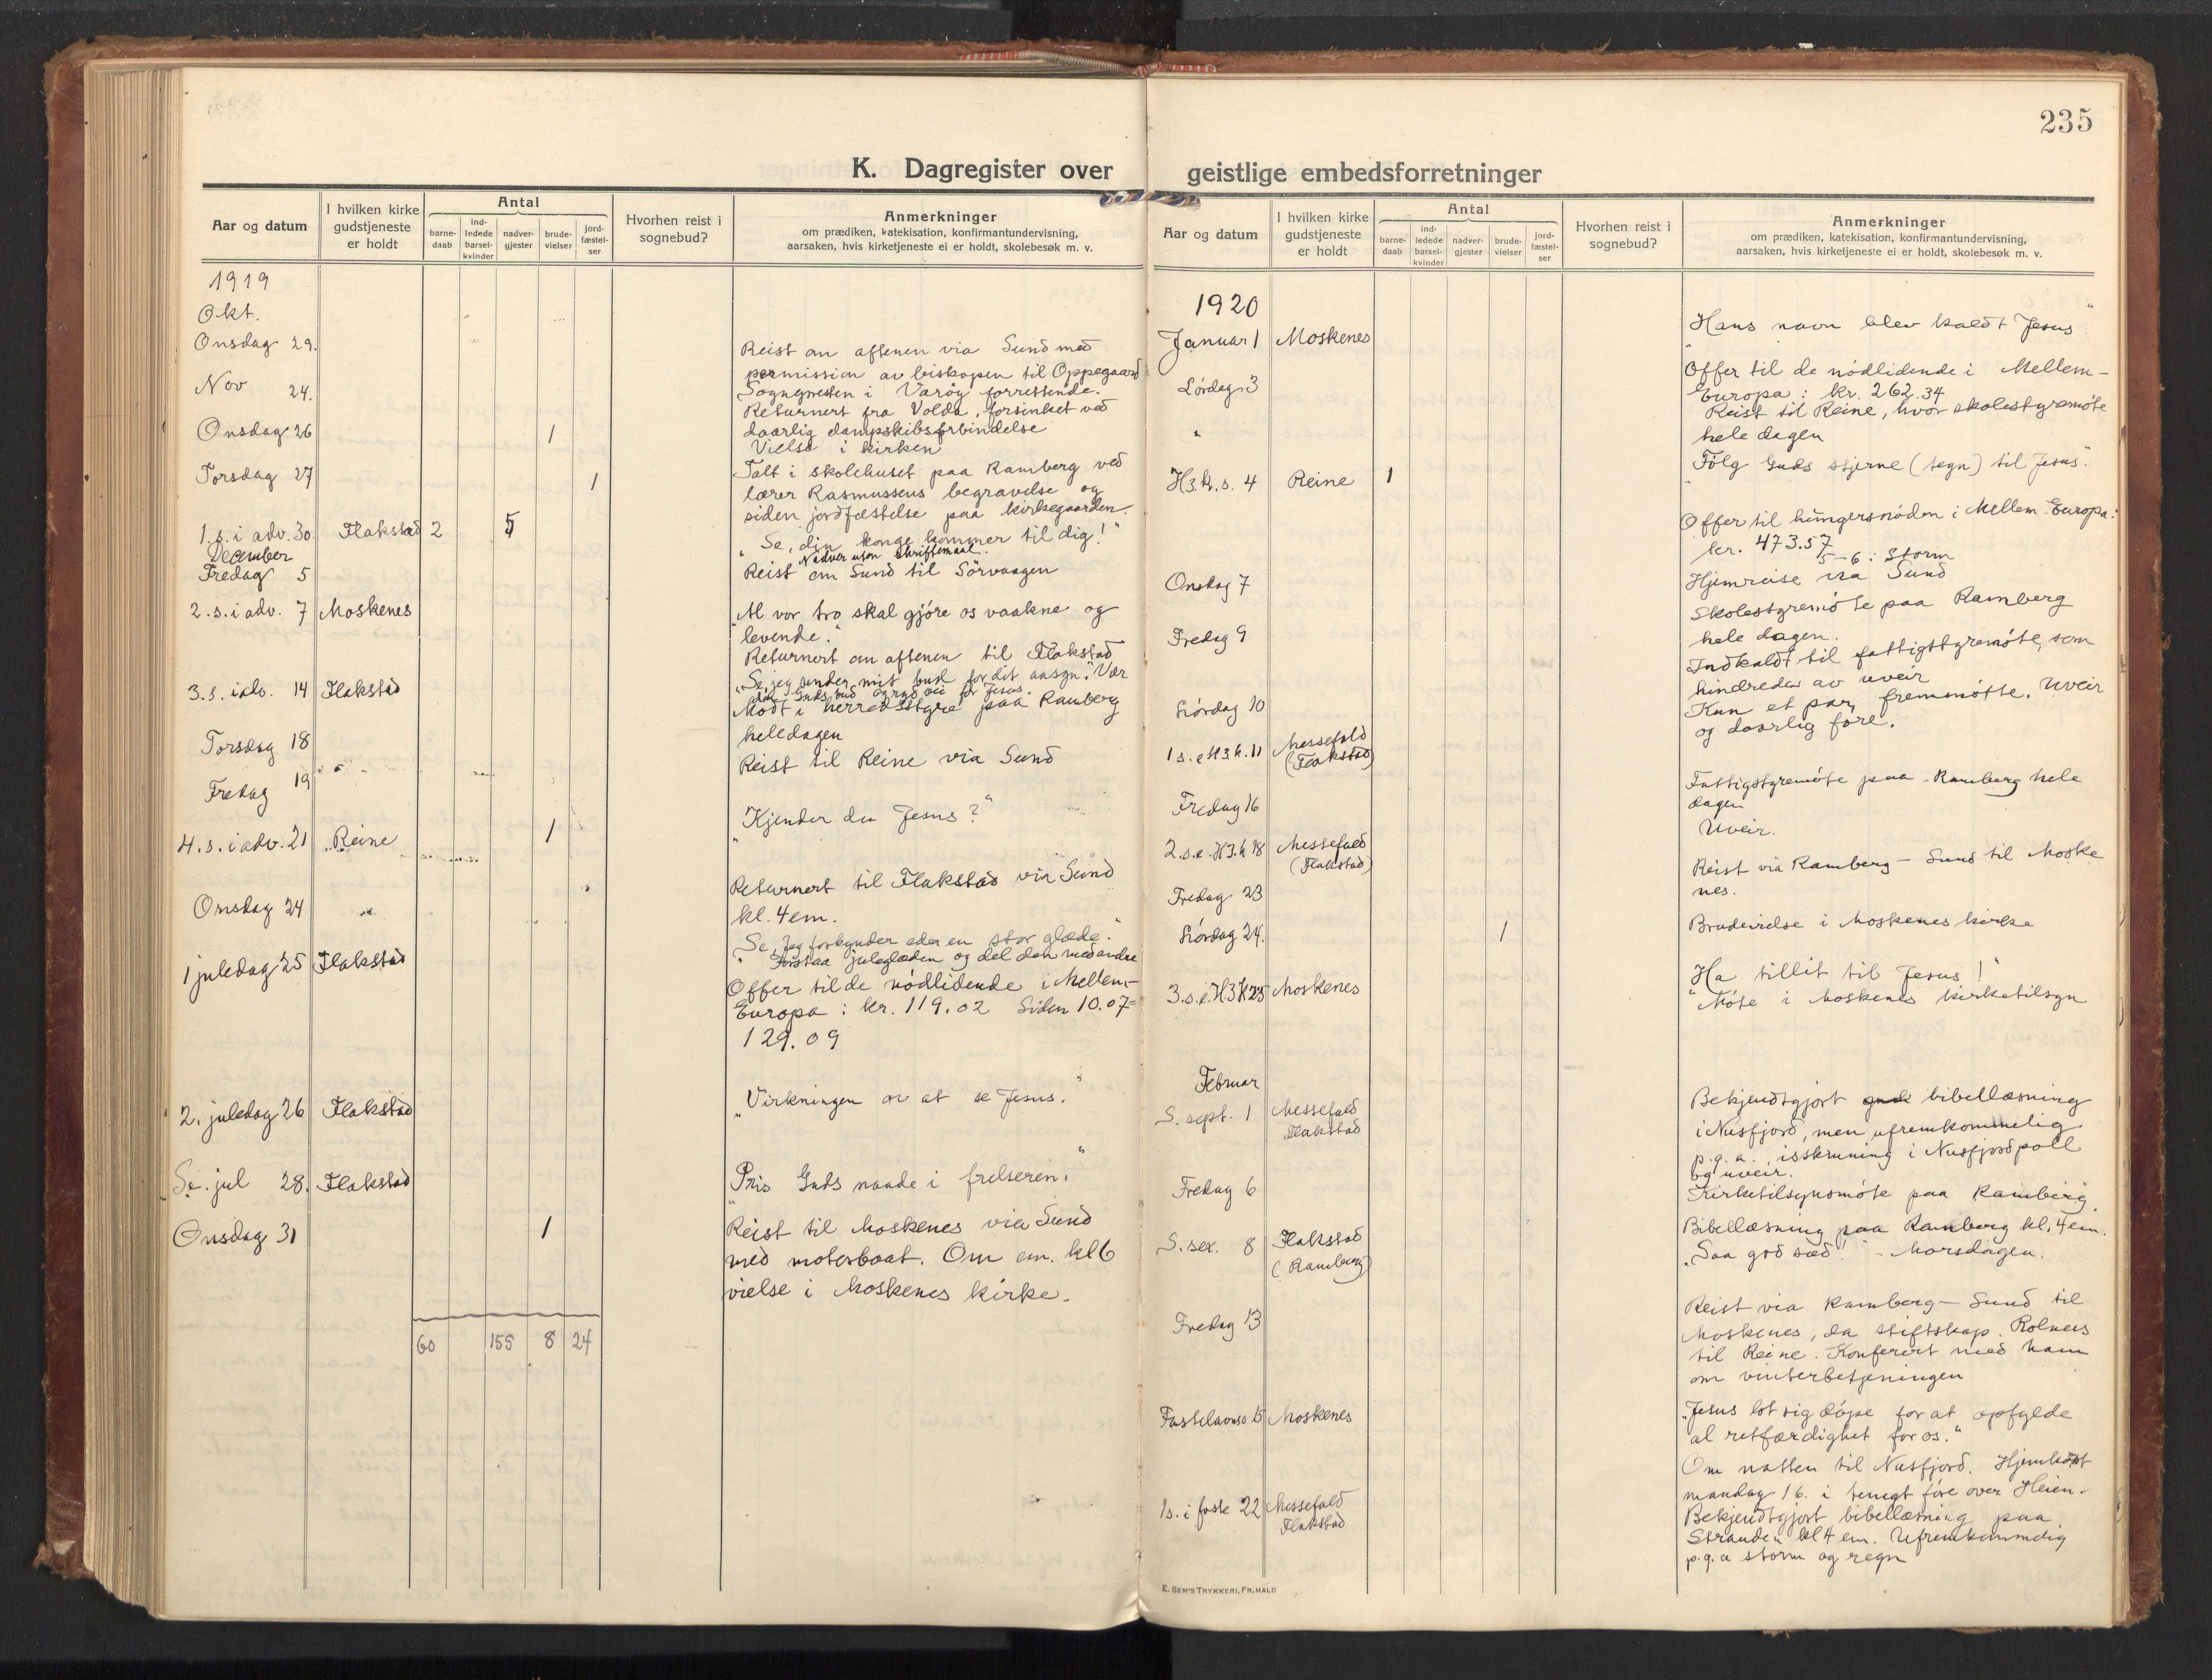 235
K. Dagregister over geistlige embedsforretninger
Aar og datum
I hvilken kirke
gudstjeneste
er holdt
Antal
barne-
daab
ind-
ledede
barsel-
kvinder
nadver-
gjester
brude-
vielser
jord-
fæstel-
ser
Hvorhen reist i
sognebud?
Anmerkninger
om prædiken, katekisation, konfirmantundervisning,
aarsaken, hvis kirketjeneste ei er holdt, skolebesøk m. v.
1919
Okt.
Onsdag 29.
Reist om aftenen via Sund med
permission av biskopen til Oppegaard
Sognepresten i Værøy forrettende.
Nov 24.
Returnert fra Volda, forsinket ved
daarlig dampskibsforbindelse
Onsdag 26 1
Vielse i kirken
Torsdag 27 1
Talt i skolehuset paa Ramberg ved
lærer Rasmussens begravelse og
siden jordfæstelse paa kirkegaarden.
1. s. i adv. 30 Flakstad 2 5
"Se, din konge kommer til dig!"
Nadver uten skriftemaal.
December
Fredag 5
Reist om Sund til Sørvaagen
2. s. i adv. 7 Moskenes
"Al vor tro skal gjøre os vaakne og
levende."
Returnert om aftenen til Flakstad
3. s. i adv. 14 Flakstad
"Se, jeg sender mit bud for dit aasyn." Vær
Guds bud og ryd vei for Jesus.
Torsdag 18
Mødt i herredsstyre paa Ramberg
hele dagen
Fredag 19
Reist til Reine via Sund
4. s. i adv. 21 Reine 1
"Kjender du Jesus?"
Onsdag 24
Returnert til Flakstad via Sund
kl. 4 em.
1 juledag 25 Flakstad
"Se, jeg forkynder eder en stor glæde."
Forstaa juleglæden og del den med andre
Offer til de nødlidende i Mellem-
Europa: kr. 119.02 Siden 10.07=
129.09
2. juledag 26 Flakstad
"Virkningen av at se Jesus."
S. e. jul 28. Flakstad
"Pris Guds naade i frelseren."
Onsdag 31 1
Reist til Moskenes via Sund
med motorbaat. Om em. kl 6
vielse i Moskenes kirke.
60 155 8 24
Aar og datum
I hvilken kirke
gudstjeneste
er holdt
Antal
barne-
daab
ind-
ledede
barsel-
kvinder
nadver-
gjester
brude-
vielser
jord-
fæstel-
ser
Hvorhen reist i
sognebud?
Anmerkninger
om prædiken, katekisation, konfirmantundervisning,
aarsaken, hvis kirketjeneste ei er holdt, skolebesøk m. v.
1920
Januar 1 Moskenes
"Hans navn blev kaldt Jesus"
Offer til de nødlidende i Mellem-
Europa: kr. 262.34
Lørdag 3
Reist til Reine, hvor skolestyremøte
hele dagen
H3.k.s. 4 Reine 1
"Følg Guds stjerne (tegn) til Jesus".
Offer til hungersnøden i Mellem-Europa:
kr. 473.57
5-6: Storm
Onsdag 7
Hjemreise via Sund
Fredag 9
Skolestyremøte paa Ramberg
hele dagen.
Lørdag 10
Indkaldt til fattigstyremøte, som
hindredes av uveir
1 s. e H3.k. 11 Messefald
(Flakstad)
Kun et par fremmøtte. Uveir
og daarlig føre.
Fredag 16
Fattigstyremøte paa Ramberg hele
dagen
2. s. e. H3.k 18 Messefald
(Flakstad)
Uveir.
Fredag 23
Reist via Ramberg - Sund til Moske
nes.
Lørdag 24. 1
Brudevielse i Moskenes kirke
3. s. e. H3k 25 Moskenes
"Ha tillit til Jesus!"
Møte i Moskenes kirketilsyn
Februar
S. sept. 1 Messefald
Flakstad
Bekjendtgjort bibellæsning
i Nusfjord, men ufremkommelig
p.g.a. isskruning i Nusfjordpoll
og uveir.
Fredag 6
Kirketilsynsmøte paa Ramberg
S. sex. 8 Flakstad
(Ramberg)
Bibellæsning paa Ramberg kl. 4 em.
"Saa god sæd!" - Morsdagen.
Fredag 13
Reist via Ramberg - Sund til
Moskenes, da stiftskap. Rolness
til Reine. Konferert med ham
om vinterbetjeningen
Fastelavns 15 Moskenes
"Jesus lot sig døpe for at opfylde
al retfærdighet for os."
Om natten til Nusfjord. Hjemkomst
mandag 16. i tungt føre over Heien.
1 s. i faste 22 Messefald
Flakstad
Bekjendtgjort bibellæsning paa
Stranden kl 4 em. Ufremkommelig
p.g.a storm og regn
E. SEM'S TRYKKERI, FR.HALD